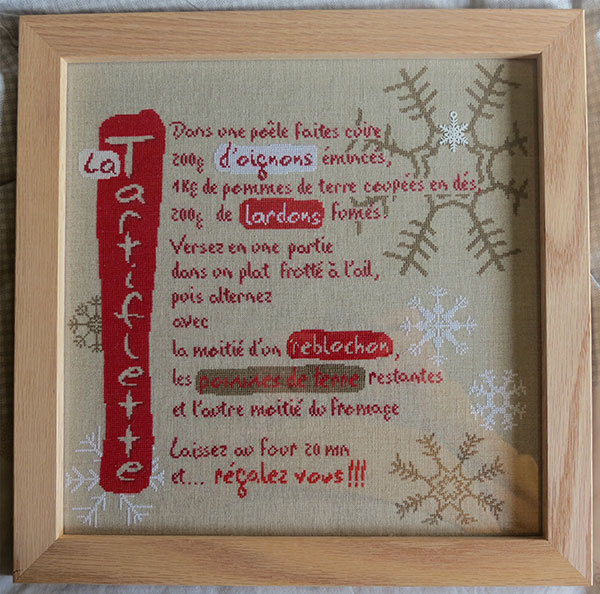 La Tartiflette
Dans une poêle faites cuire
200g d'oignons émincés,
1Kg de pommes de terre coupées en dés,
200g de lardons fumés!
Versez en une partie
dans un plat frotté à l'ail,
puis alternez
avec
la moitié d'un reblochon,
les pommes de terre restantes
et l'autre moitié du fromage
Laissez au four 20 mn
et... régalez vous!!!